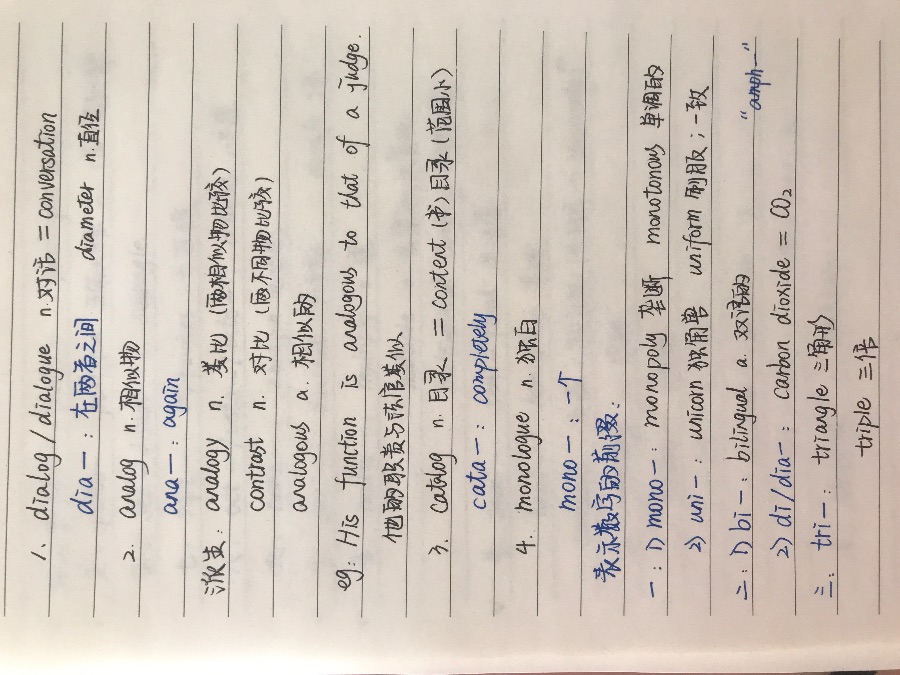 1. dialog/dialogue n.对话 = conversation
dia一: 在两者之间 diameter n.直径
2. analog n.相似物
ana一: again
派生: analogy n. 类比 (两相似物比较)
contrast n. 对比 (两不同物比较)
analogous a. 相似的
eg: His function is analogous to that of a judge.
他的职责与法官类似
3. catalog n.目录 = content (书)目录(范围小)
cata一: completely
4. monologue n.独白
mono一: 一个
表示数字的前缀:
一: 1) mono一: monopoly 垄断 monotonous 单调的
2) uni一: unicorn 独角兽 uniform 制服; 一致
二: 1) bi一: bilingual a. 双语的 "amph一"
2) di/dia一: carbon dioxide = CO₂
三: tri一: triangle 三角形
triple 三倍